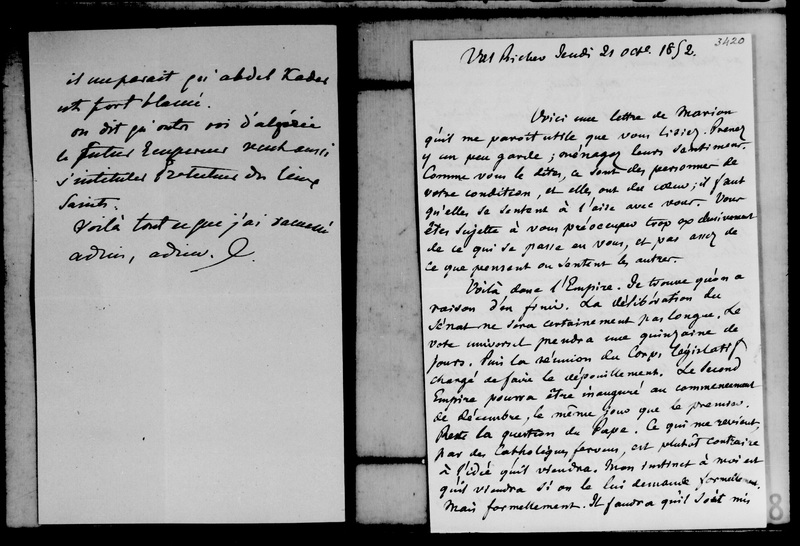 il me parait qu'abdel Kader
est fort blamé.
on dit qu'outre roi d'algérie
le futur Empereur veut aussi
s'instituer Protecteur des lieux
Saints.
Voilà tout ce que j'ai ramassé
adieu, adieu.
3420
Val Richer Jeudi 21 oct. 1852
Voici une lettre de Marion
qu'il me paroît utile que vous lisiez. Prenez
y un peu garde ; ménagez leurs sentimens.
Comme vous le dites, ce sont des personnes de
votre condition, et elles ont du cœur ; il faut
qu'elles se sentent à l'aise avec vous. Vous
êtes sujette à vous préoccuper trop exclusivement
de ce qui se passe en vous, et pas assez de
ce que pensent ou sentent les autres.
Voilà donc l'Empire. Je trouve qu'on a
raison d'en finir. La délibération du
Sénat ne sera certainement pas longue. Le
vote universel prendra une quinzaine de
jours. Puis la réunion du Corps législatif
chargé de faire le dépouillement. Le Second
Empire pourra être inauguré au commencement
de Décembre, le même jour que le premier.
Reste la question du Pape. Ce qui me revient,
par des Catholiques fervens, est plutôt contraire
à l'idée qu'il viendra. Mon instinct à moi est
qu'il viendra si on le lui demande formellement.
Mais formellement. Il faudra qu'il soit mis
8